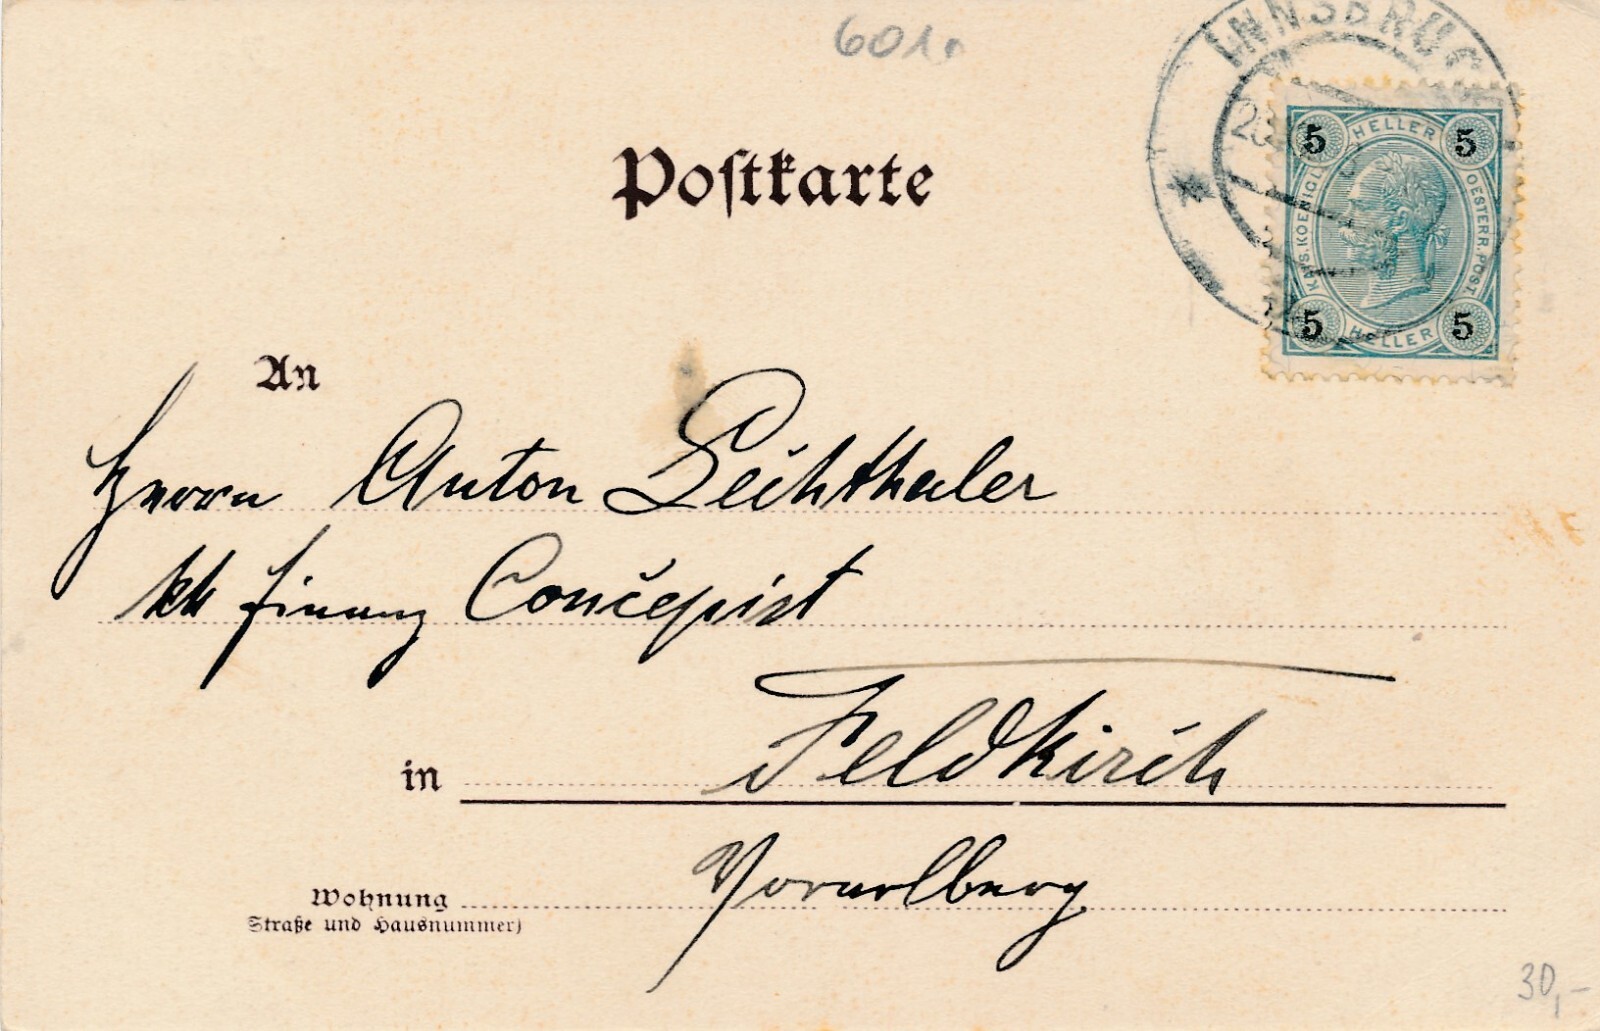 601.
INNSBRUC
5 HELLER 5
KAYS. KOENIGL. OESTERR. POST.
5 HELLER 5
Postkarte
An
Herrn Anton Lechthaler
kk Finanz Concepist
in Feldkirch
Vorarlberg
Wohnung
Straße und Hausnummer)
30,-